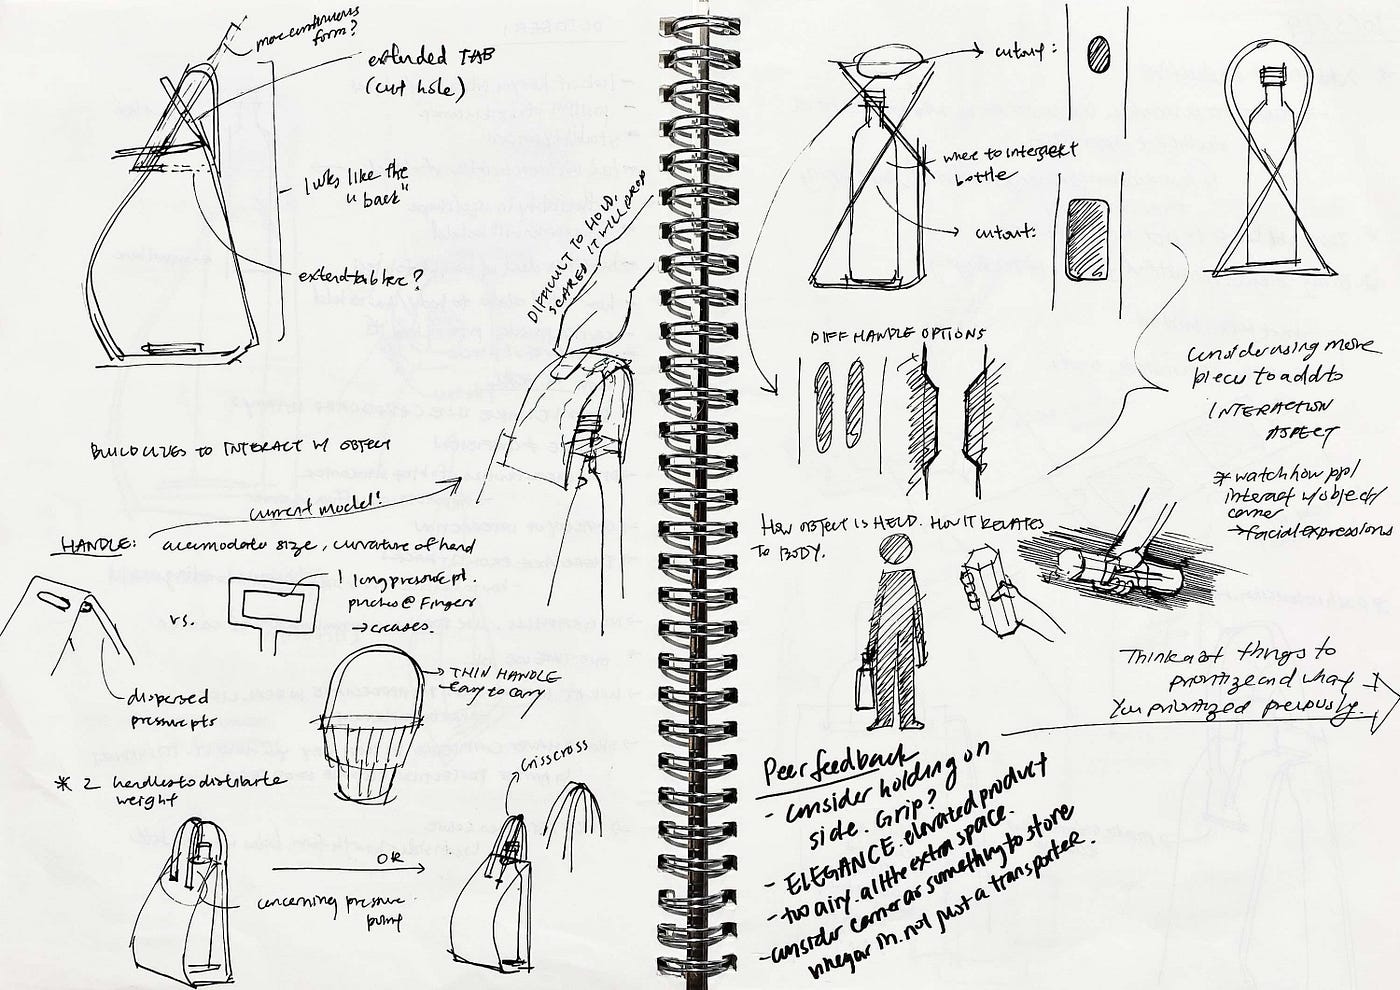 more continuous
form?
extended TAB
(cut hole)
looks like the
"back"
extend tab here?
DIFFICULT TO HOLD,
SCARED IT WILL DROP
BUILD USES TO INTERACT W/ OBJECT
current model!
HANDLE: accomodate size, curvature of hand
vs.
1 long pressure pt.
pinches @ fingers
→ creases.
dispersed
pressure pts
THIN HANDLE
easy to carry
* 2 handles to distribute
weight
crisscross
OR
concerning pressure
cutout:
where to intersect
bottle
cutout:
DIFF HANDLE OPTIONS
consider using more
pieces to add to
INTERACTION
ASPECT
* watch how ppl
interact w/ object/
carrier
→ facial expressions
HOW OBJECT IS HELD. HOW IT RELATES
TO BODY.
Think abt things to
prioritize and what
you prioritized previously.
Peer feedback
- consider holding on
side. Grip?
- ELEGANCE. elevated product
- two airy. all the extra space.
- consider carrier as something to store
vinegar in. not just a transporter.